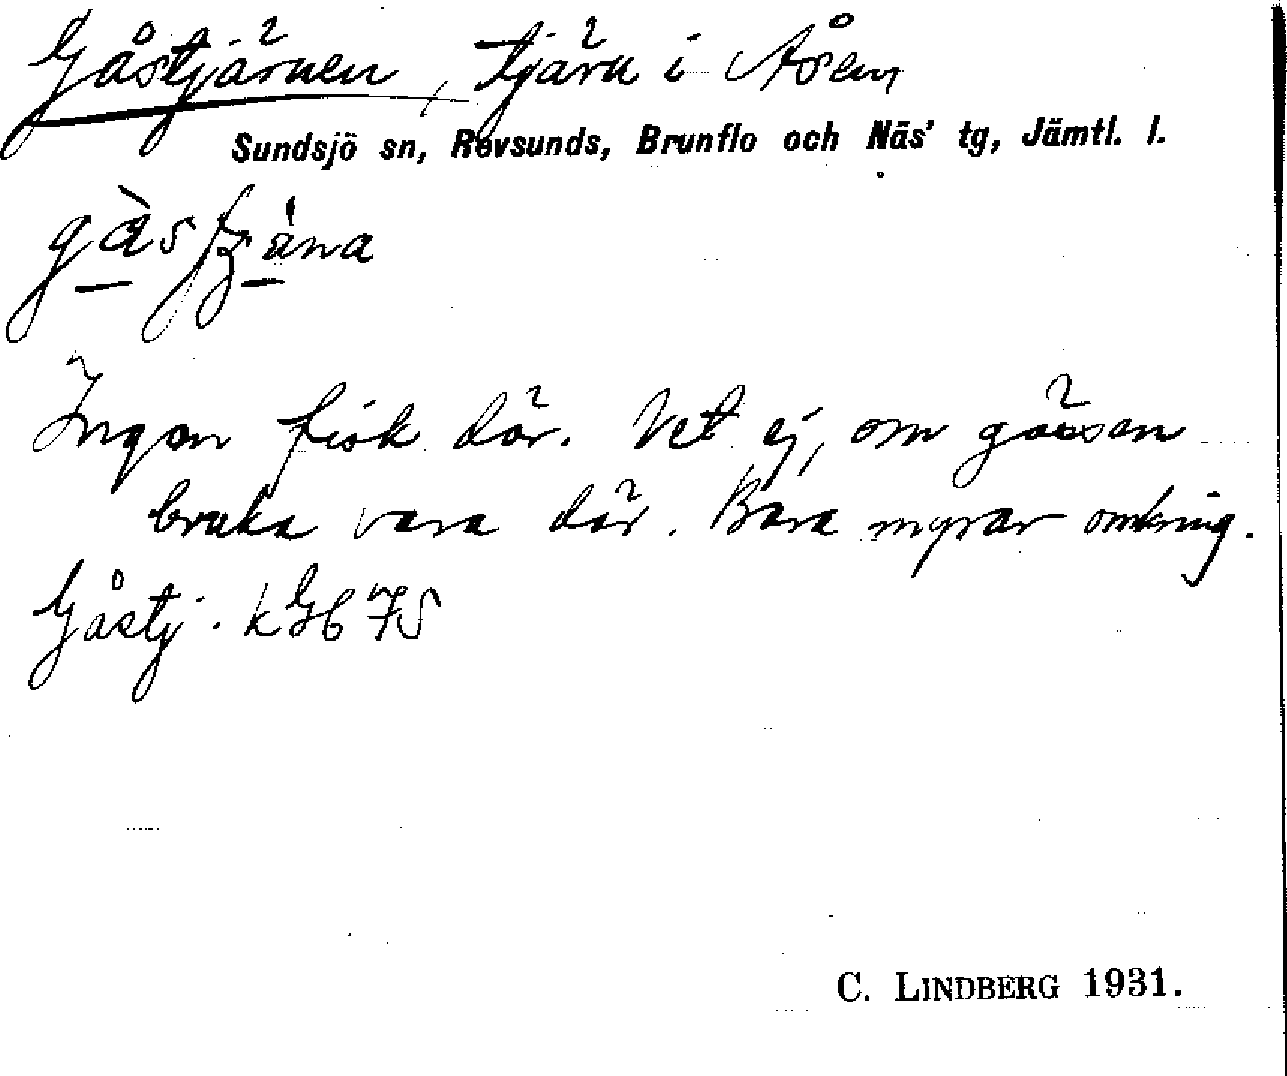 Gåstjärnen, tjärn i Åsen
Sundsjö sn, Revsunds, Brunflo och Näs' tg, Jämtl. l.
Ingen fisk där. Vet ej, om gässen
bruka vara där. Bara myrar omkring.
Gåstj. kGb 75
C. LINDBERG 1931.